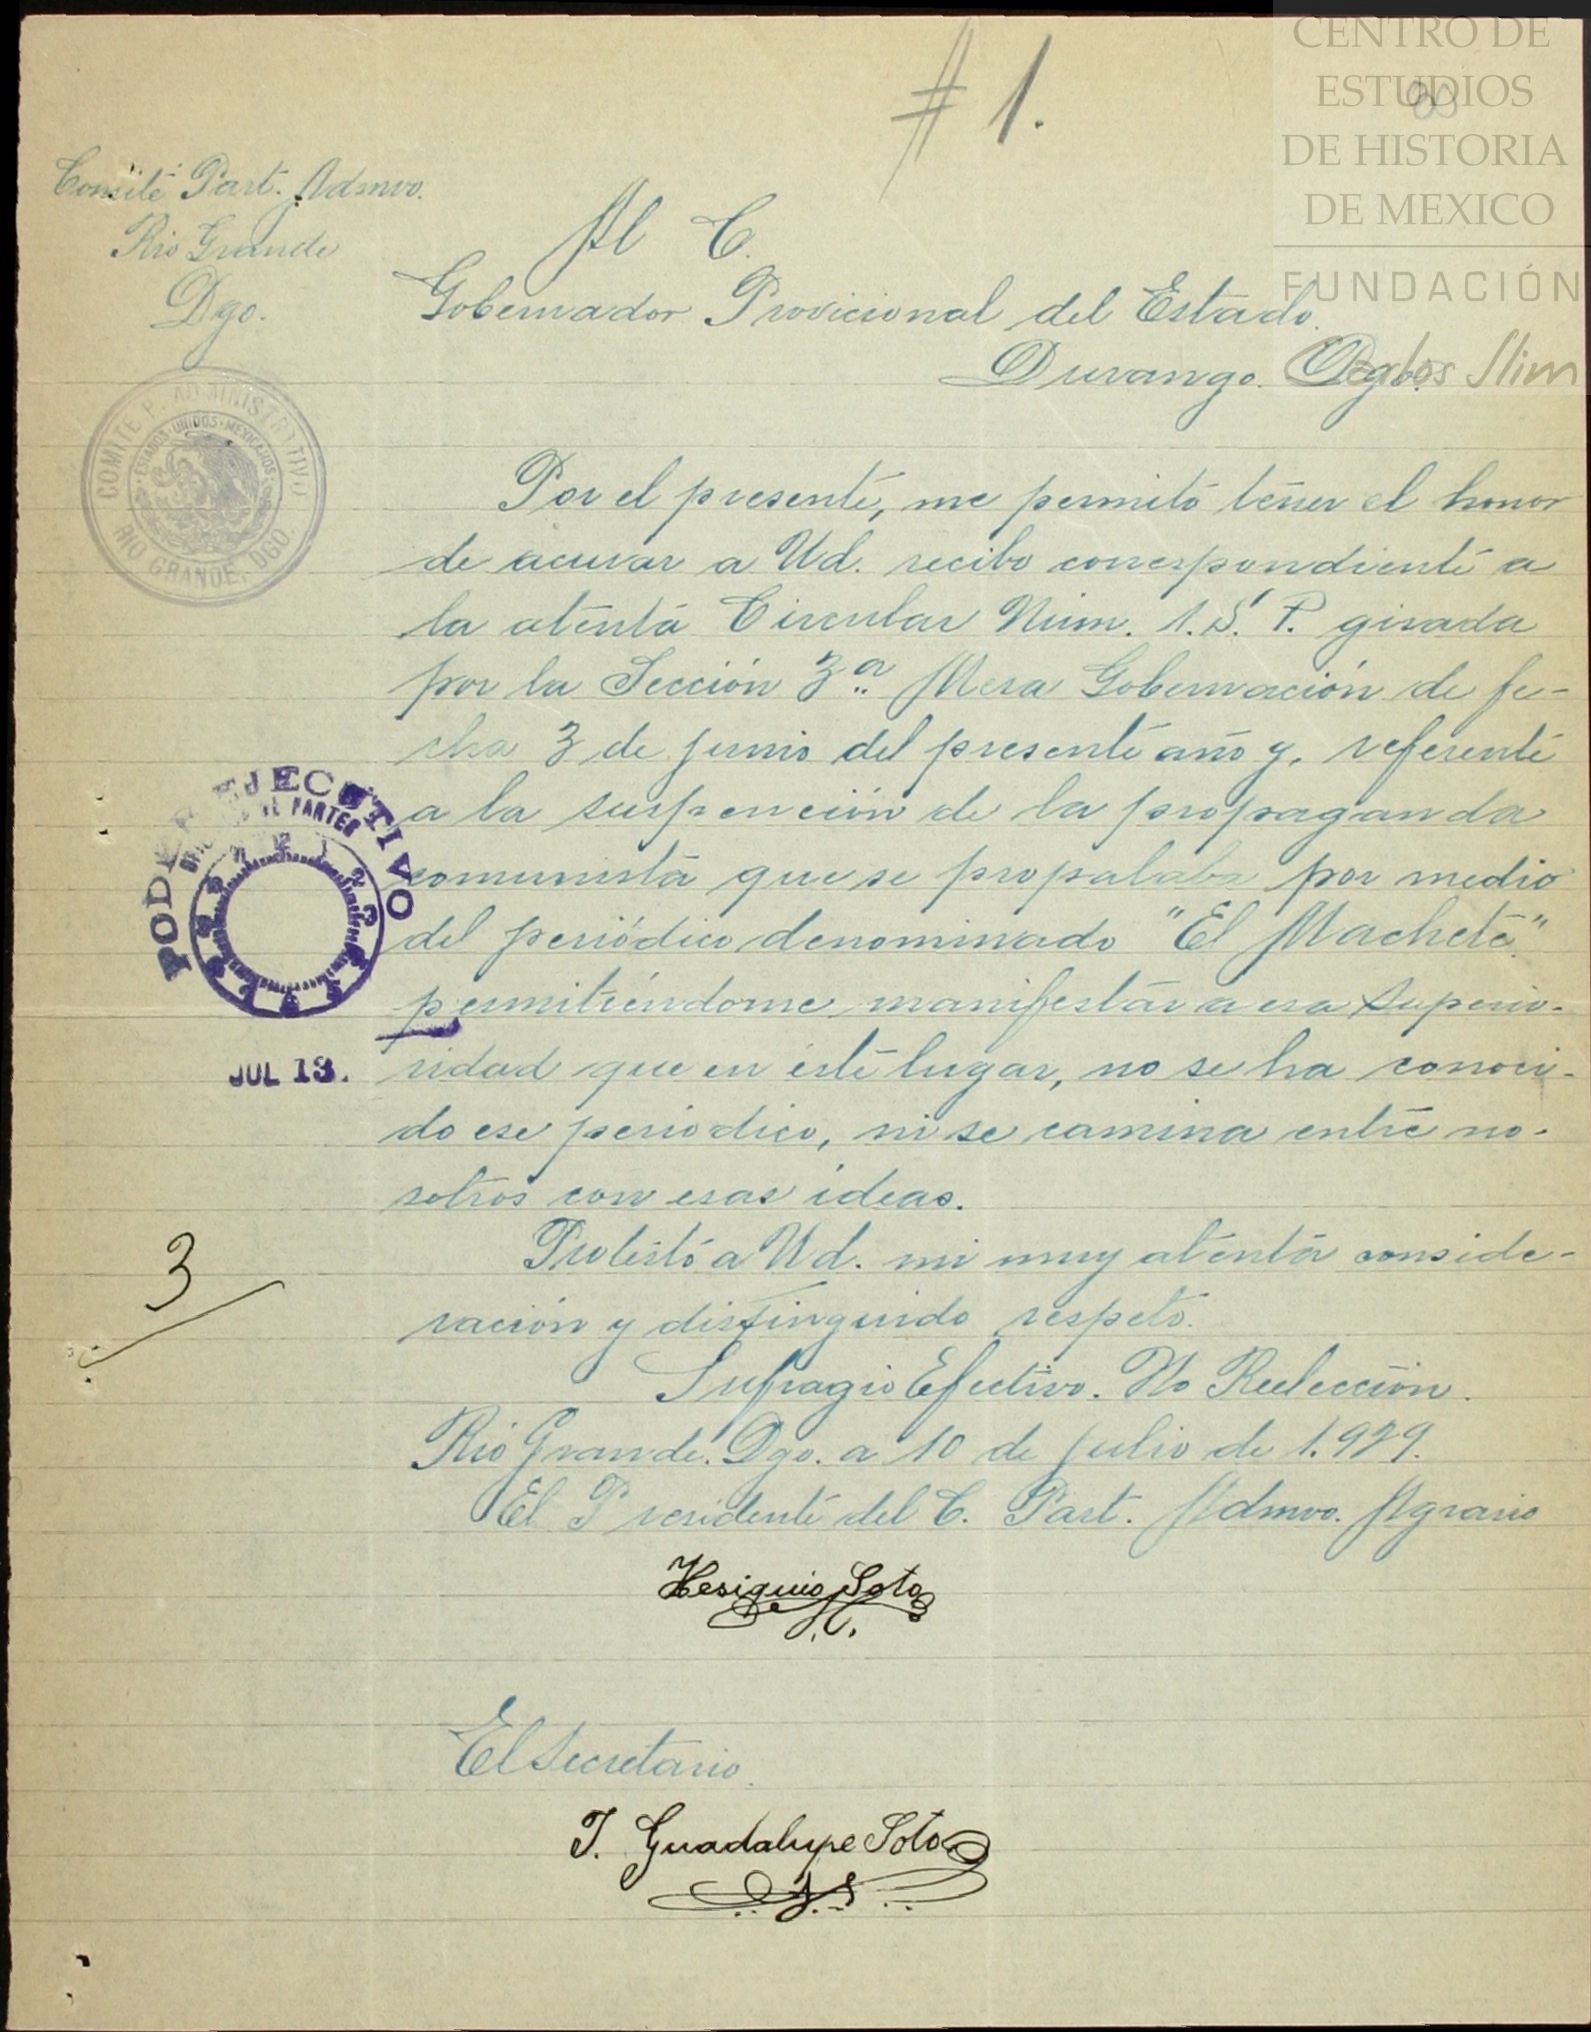 # 1.
CENTRO DE
ESTUDIOS
DE HISTORIA
DE MEXICO
FUNDACIÓN
Carlos Slim
Comité Part. Admvo.
Rio Grande
Dgo.
COMITE P. ADMINISTRATIVO
ESTADOS·UNIDOS·MEXICANOS
RIO GRANDE, DGO.
Al C.
Gobernador Provicional del Estado.
Durango. Dgo.
Por el presente, me permito tener el honor
de acusar a Ud. recibo correspondiente a
la atenta Circular Núm. 1. S. P. girada
por la Sección 3ª. Mesa Gobernación de fe-
cha 3 de junio del presente año y, referente
a la suspención de la propaganda
comunista que se propalaba por medio
del periódico denominado "El Machete"
permitiéndome manifestar a esa Superio-
ridad que en éste lugar, no se ha conoci-
do ese periodico, ni se camina entre no-
sotros con esas ideas.
Protesto a Ud. mi muy atenta conside-
ración y distinguido respeto.
Sufragio Efectivo. No Reelección.
Rio Grande. Dgo. a 10 de julio de 1.929.
El Presidente del C. Part. Admvo. Agrario
Hesiquio Soto
El Secretario.
J. Guadalupe Soto
J. S.
PODER EJECUTIVO
DE PARTES
JUL 13.
3